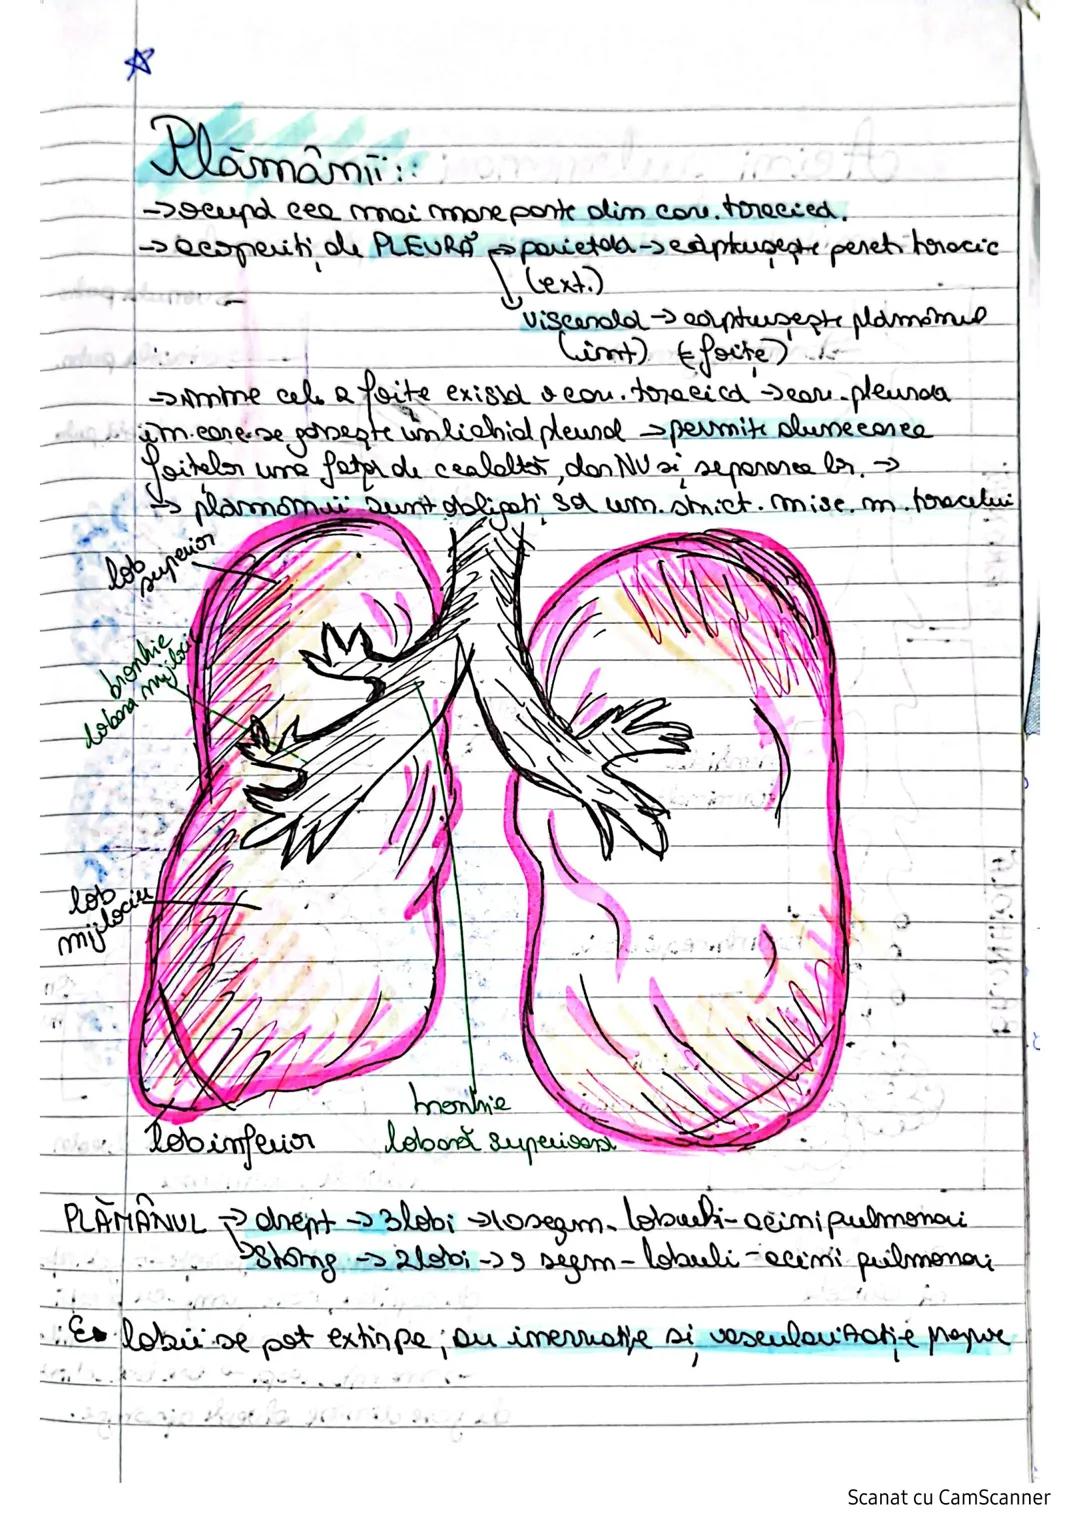 Plămânii::
→ocupă cea mai mare parte din cav. toracică.
→acoperiți de PLEURĂ →parietală→căptușește pereții toracic
(ext.)
viscerală→căptușește plămânul
(int) (foițe)
→între cele 2 foițe există o cav. toracică →cav. pleurală
în care se găsește un lichid pleural →permite alunecarea
foițelor una față de cealaltă, dar NU și separarea lor. →
→ plămânii sunt obligați să urm. strict. mișc. m. toracelui
lob
superior
bronhie
lobară mijlocie
lob
mijlociu
lob inferior
bronhie
lobară superioară
PLĂMÂNUL → drept →3lobi →10segm- lobuli-acini pulmonari
→stâng →2lobi→9 segm-lobuli-acini pulmonari
lobii se pot extirpa; au inervație și vascularizație proprie
Scanat cu CamScanner